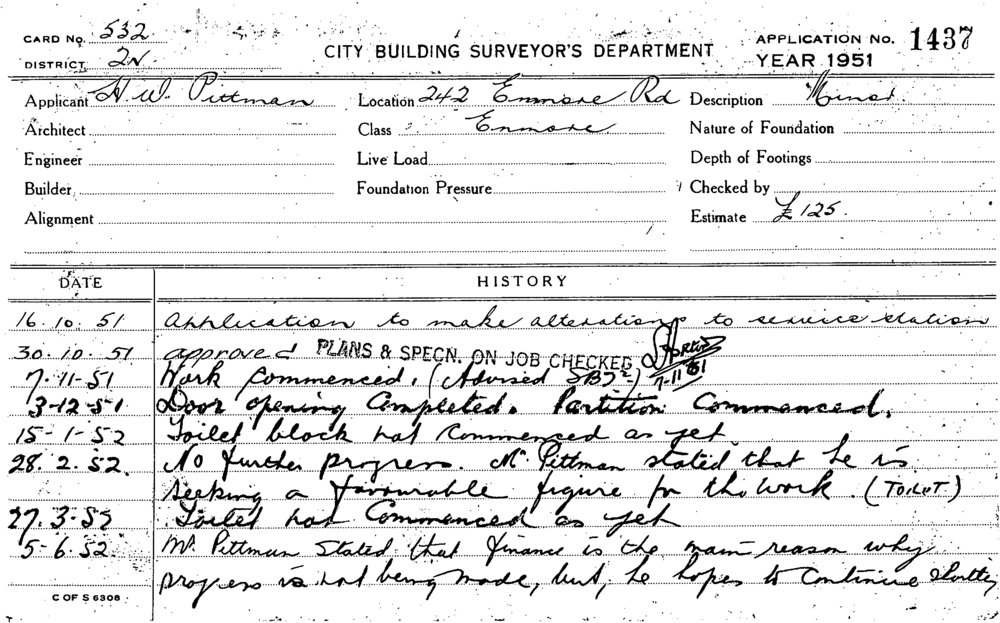 CARD No. 532
DISTRICT 2N
CITY BUILDING SURVEYOR'S DEPARTMENT
APPLICATION No. 1437
YEAR 1951
Applicant H. W. Pittman
Location 242 Enmore Rd
Description Minor.
Architect
Class Enmore
Nature of Foundation
Engineer
Live Load
Depth of Footings
Builder
Foundation Pressure
Checked by
Alignment
Estimate £125.
DATE HISTORY
16.10.51 Application to make alterations to service station
30.10.51 approved PLANS & SPECN. ON JOB CHECKED
7-11-51
7-11-51 Work Commenced. (Advised
3-12-51 Door opening Completed. Partition Commenced.
15-1-52 Toilet block not Commenced as yet
28.2.52. No further progress. Mr. Pittman stated that he is
seeking a favourable figure for the work. (TOILET.)
27.3-52 Toilet not Commenced as yet
5-6.52 Mr. Pittman stated that finance is the main reason why
progress is not being made, but, he hopes to Continue Shortly
C OF S 6308